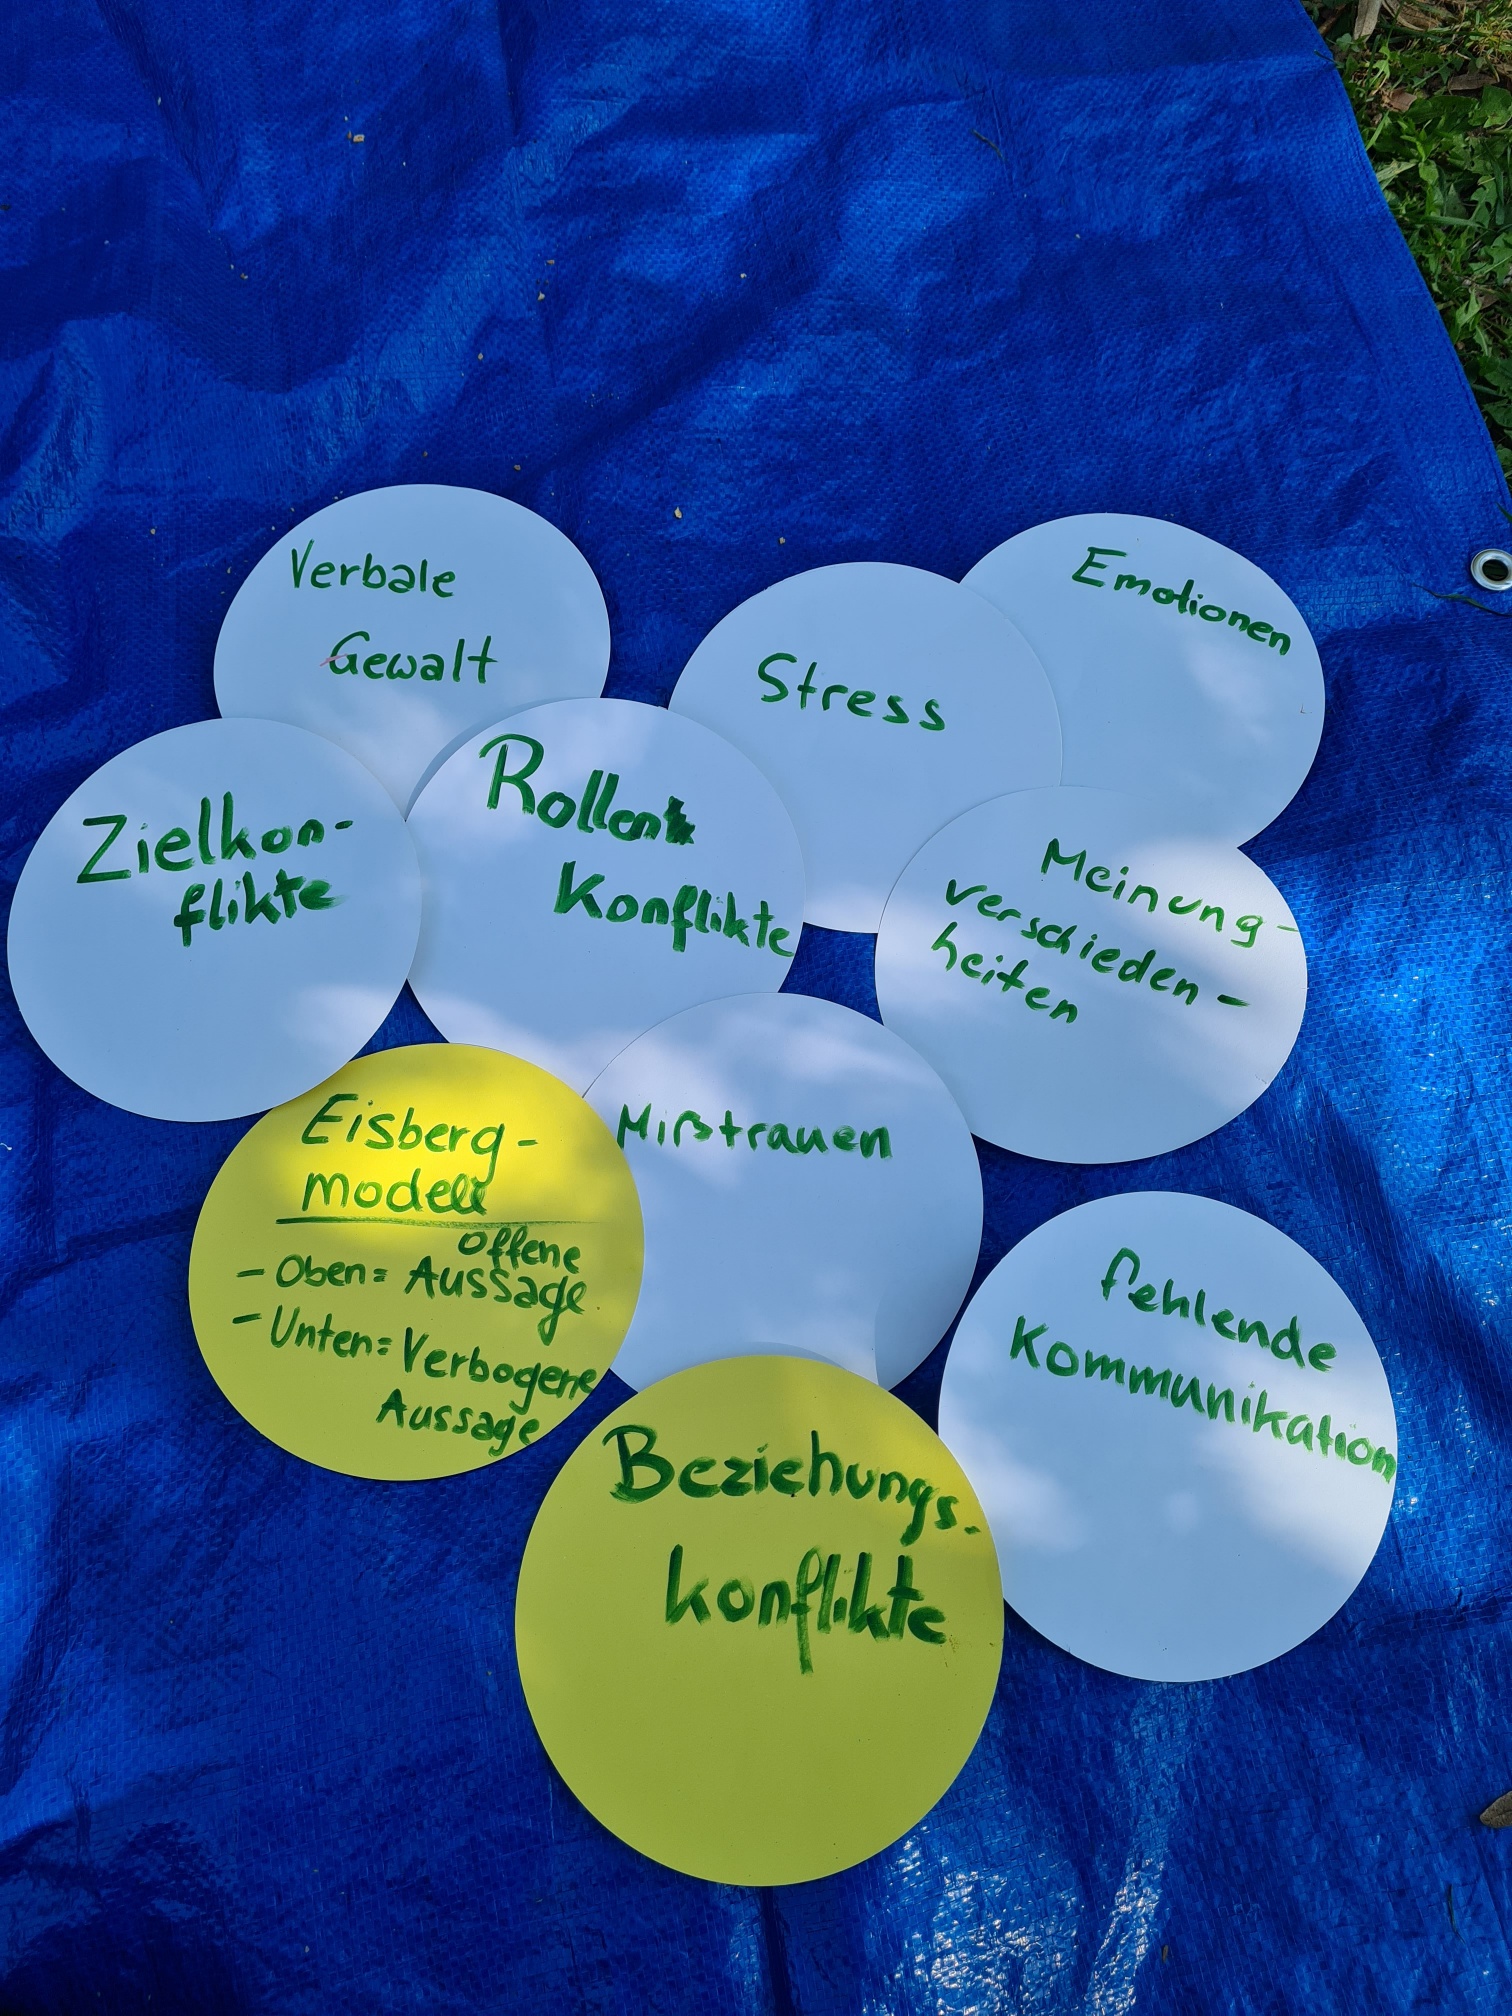 Verbale
Gewalt
Stress
Emotionen
Zielkon-
flikte
Rollen
Konflikte
Meinung-
verschieden-
heiten
Eisberg-
modell
- Oben= Offene
Aussage
- Unten= Verbogene
Aussage
Mißtrauen
Fehlende
Kommunikation
Beziehungs-
konflikte